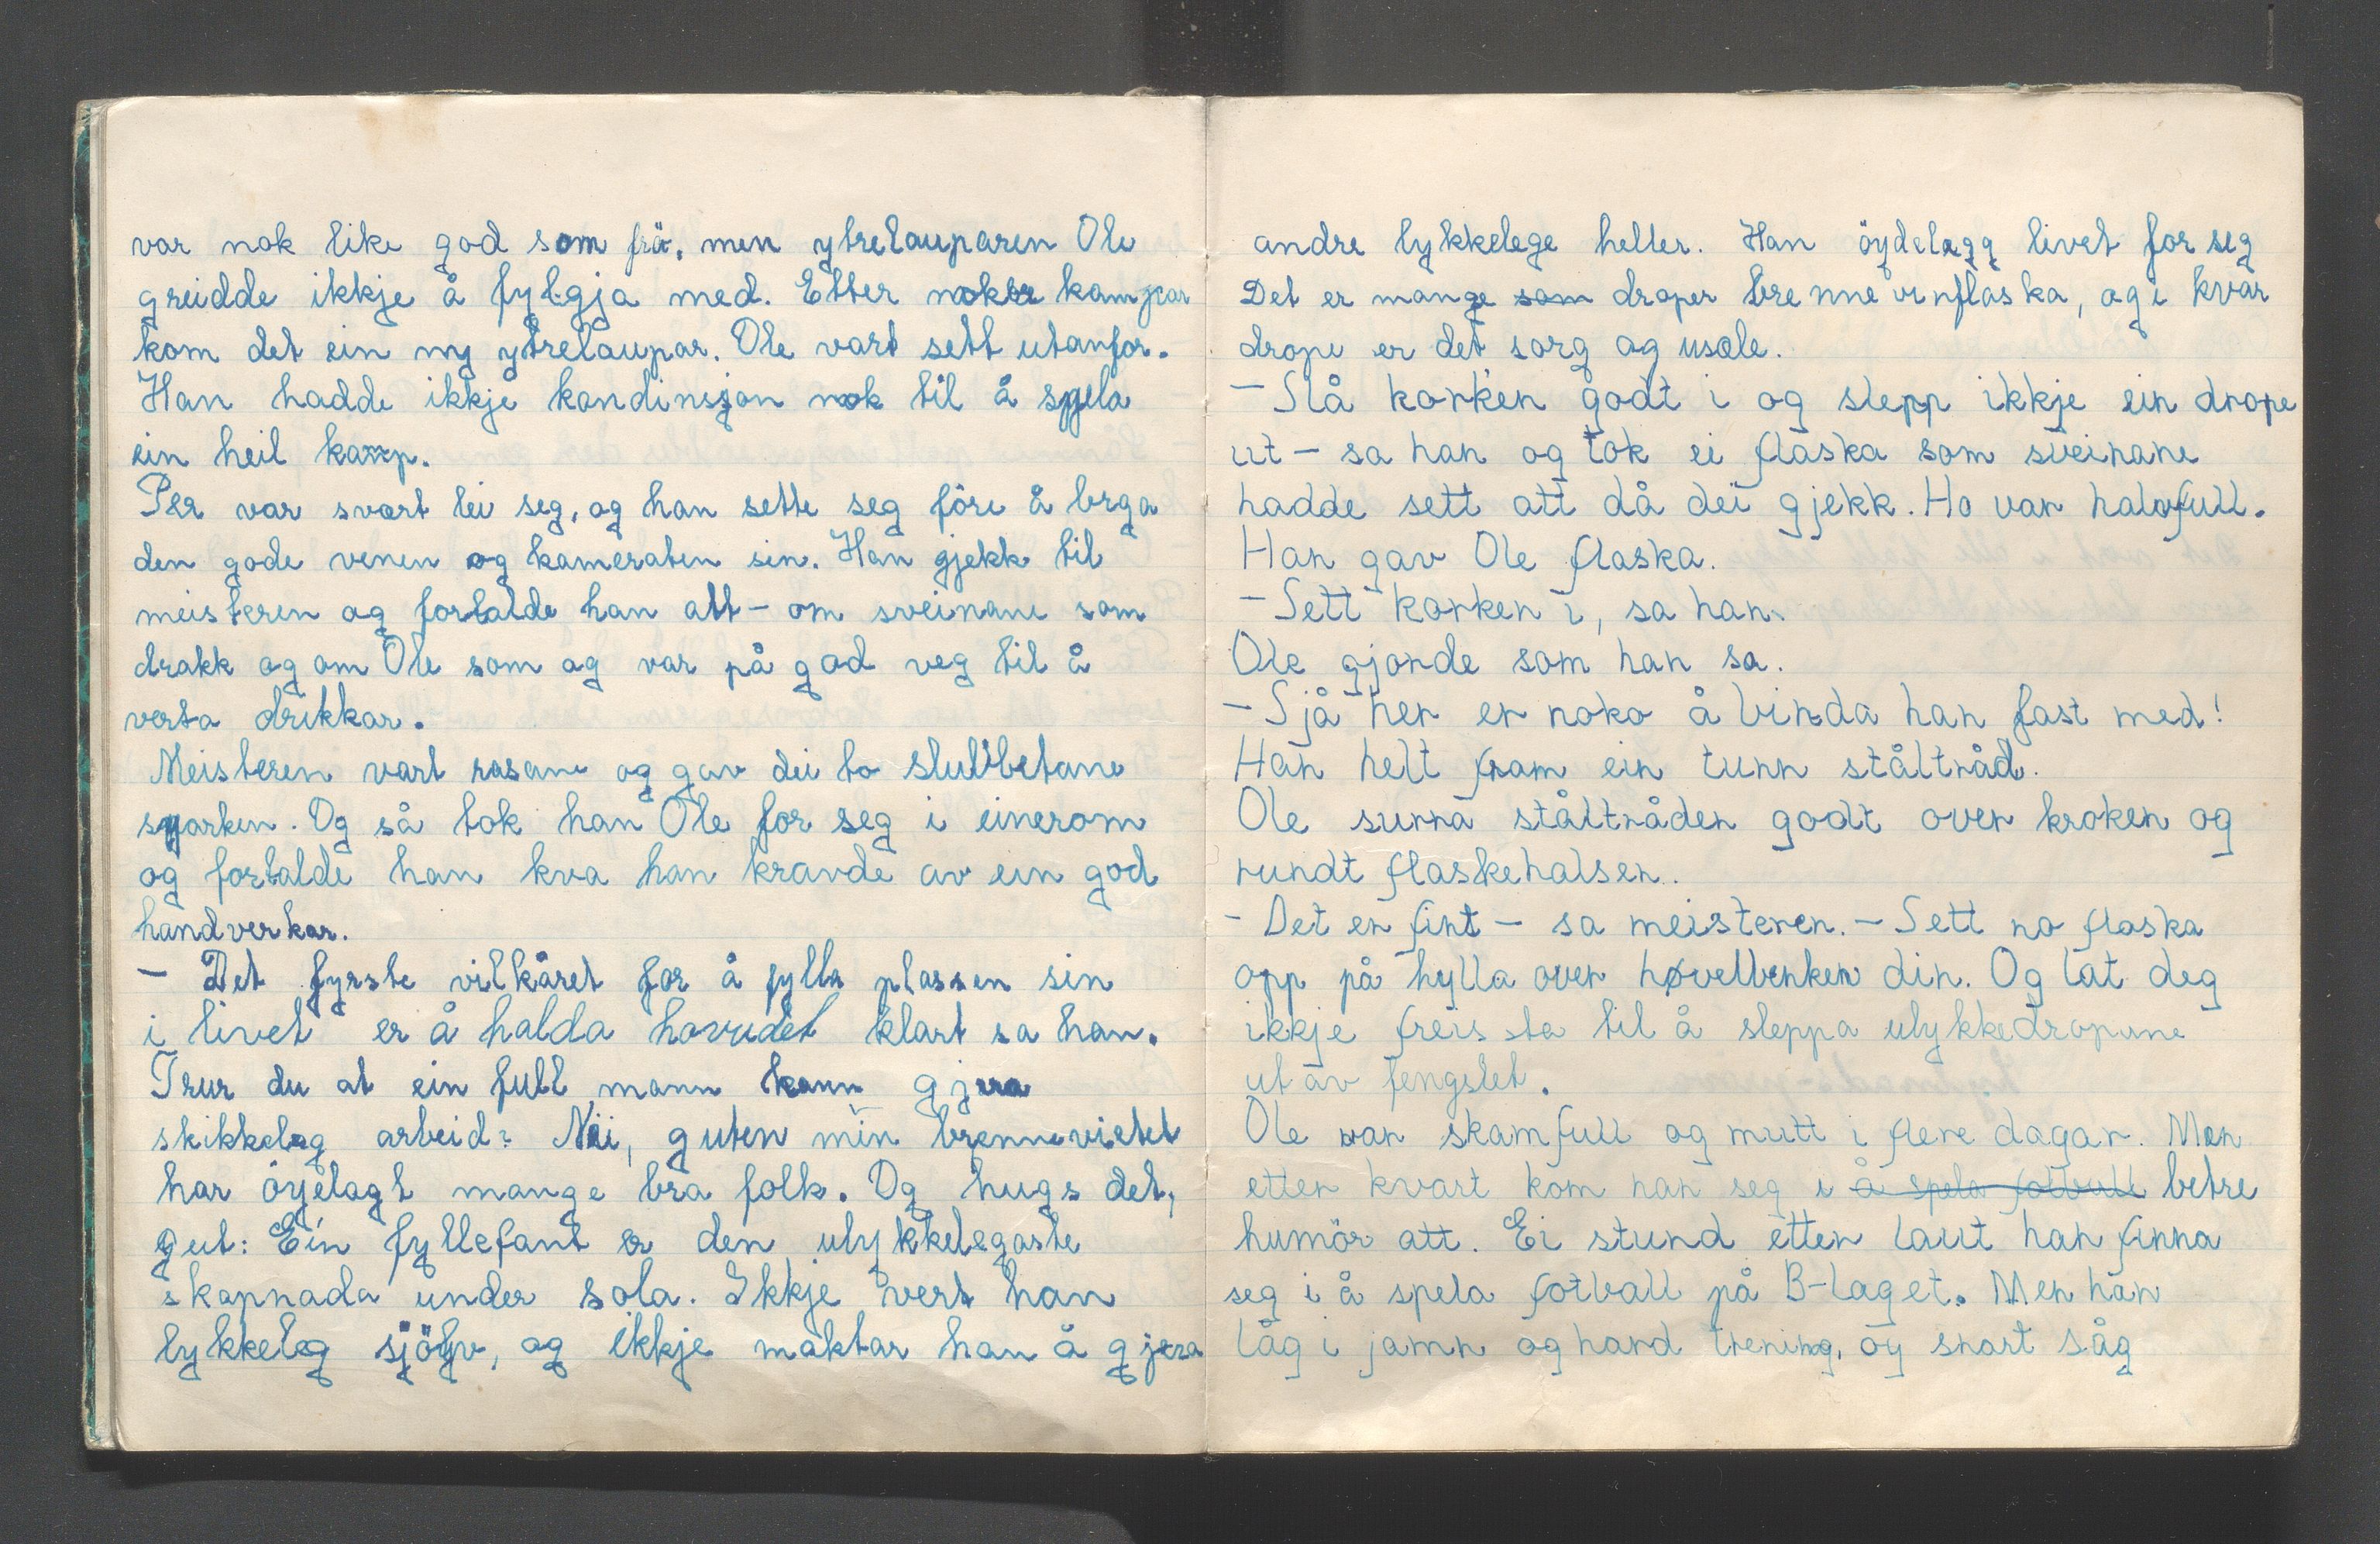 var nok like god som frå. men ytrelauparen Ole
greidde ikkje å fylgja med. Etter nokre kampar
kom det ein ny ytrelaupar. Ole vart sett utanfor.
Han hadde ikkje kondinsjon nok til å spela
ein heil kamp.
Per var svært lei seg, og han sette seg före å brga
den gode venen og kameraten sin. Han gjekk til
meisteren og fortalde han alt - om sveinane som
drakk og om Ole som og var på god veg til å
verta drikkar.
Meisteren vart rasane og gav dei to slubbetane
sparken. Og så tok han Ole for seg i einerom
og fortalde han kva han kravde av ein god
handverkar.
- Det fyrste vilkåret for å fylla plassen sin
i livet er å halda hovudet klart sa han.
Trur du at ein full mann kann gjera
skikkeleg arbeid? Nei, guten min brennevietet
har öyelagt mange bra folk. Og hugs det,
gut: Ein fyllefant er den ulykkelegaste
skapnada under sola. Ikkje vert han
lykkeleg sjölv, og ikkje maktar han å gjera
andre lykkelege heller. Han öydelegg livet for seg
Det er mange som droper brennevinflaska, og i kvar
drope er det sorg og usæle.
- Slå korken godt i og slepp ikkje ein drope
ut - sa han og tok ei flaska som sveinane
hadde sett att då dei gjekk. Ho var halvfull.
Han gav Ole flaska.
- Sett korken i, sa han.
Ole gjorde som han sa.
- Sjå her er noko å binda han fast med!
Han helt fram ein tunn ståltråd.
Ole surra ståltråden godt over kroken og
rundt flaskehalsen.
- Det er fint - sa meisteren. - Sett no flaska
opp på hylla over høvelbenken din. Og lat deg
ikkje freista til å sleppa ulykkedropane
ut av fengslet.
Ole var skamfull og mutt i flere dagar. Men
etter kvart kom han seg i å spela fotball betre
humör att. Ei stund etter laut han finna
seg i å spela fotball på B-laget. Men han
låg i jamn og hard trening, og snart såg